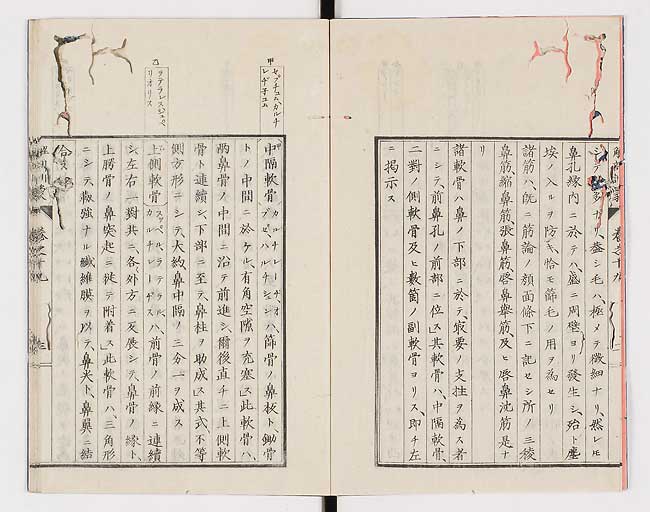 シテ
ナリ、蓋シ毛ハ、極メテ微細ナリ、然レ𪜈
鼻孔緣內ニ於テハ、盛ニ周壁ヨリ發生シ、殆ト塵
埃ノ入ルヲ防キ、恰モ篩毛ノ用ヲ為セリ
諸筋ハ、旣ニ筋論、顔面條下ニ記セシ所ノ三稜
鼻筋、縮鼻筋、張鼻筋、唇鼻擧筋、及ヒ唇鼻沈筋是ナ
リ
諸軟骨ハ鼻ノ下部ニ於テ、最要ノ支拄ヲ為ス者
ニシテ、前鼻孔ノ前部ニ位ス其軟骨ハ、中隔軟骨、
二對ノ側軟骨及ヒ數箇ノ副軟骨ヨリス、即チ左
ニ揭示ス
甲
セプチュム、カルチ
レヂ子ユム
中隔軟骨
ハ、篩骨ノ鼻板ト、鋤骨
トノ中間ニ於ケル、有角空隙ヲ充塞ス此軟骨ハ、
兩鼻骨ノ中間ニ沿テ前進シ、爾後直チニ上側軟
骨ト連續シ、下部ニ至テ、鼻柱ヲ助成ス其式不等
側方形ニシテ、大約、鼻中隔ノ三分一ヲ成ス
乙
ラテラレス、シュペ
リオリス
上側軟骨
ハ、前骨ノ前緣ニ連續
シ、左右一對共ニ、各外方ニ反展シテ、鼻骨ノ緣ト、
上腾骨ノ鼻突起ニ徙テ附着ス此軟骨ハ、三角形
ニシテ、極強ナル纖維膜ヲ以テ、鼻尖ト、鼻翼ニ結